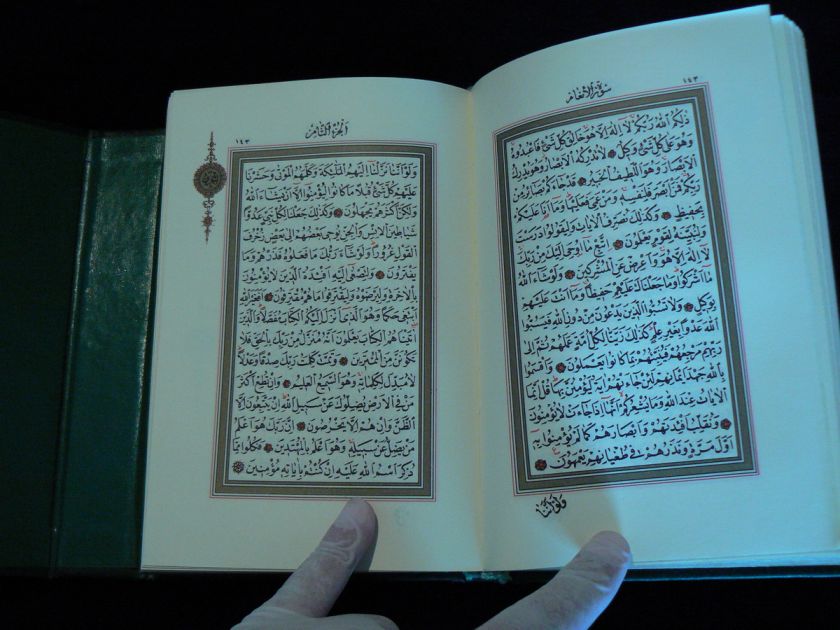 سُورَةُ الْاَنْعَامِ
ذٰلِكُمُ اللّٰهُ رَبُّكُمْ لَٓا اِلٰهَ اِلَّا هُوَ خَالِقُ كُلِّ شَيْءٍ فَاعْبُدُوهُ
وَهُوَ عَلٰى كُلِّ شَيْءٍ وَكِيلٌ لَا تُدْرِكُهُ الْاَبْصَارُ وَهُوَ يُدْرِكُ
الْاَبْصَارَ وَهُوَ اللَّطِيفُ الْخَبِيرُ قَدْ جَٓاءَكُمْ بَصَٓائِرُ مِنْ
رَبِّكُمْ فَمَنْ اَبْصَرَ فَلِنَفْسِهِ وَمَنْ عَمِيَ فَعَلَيْهَا وَمَٓا اَنَا۬ عَلَيْكُمْ
بِحَفِيظٍ وَكَذٰلِكَ نُصَرِّفُ الْاٰيَاتِ وَلِيَقُولُوا دَرَسْتَ
وَلِنُبَيِّنَهُ لِقَوْمٍ يَعْلَمُونَ اِتَّبِعْ مَٓا اُو۫حِيَ اِلَيْكَ مِنْ رَبِّكَ
لَٓا اِلٰهَ اِلَّا هُوَ وَاَعْرِضْ عَنِ الْمُشْرِكِينَ وَلَوْ شَٓاءَ اللّٰهُ
مَٓا اَشْرَكُوا وَمَا جَعَلْنَاكَ عَلَيْهِمْ حَفِيظًا وَمَٓا اَنْتَ عَلَيْهِمْ
بِوَكِيلٍ وَلَا تَسُبُّوا الَّذِينَ يَدْعُونَ مِنْ دُونِ اللّٰهِ فَيَسُبُّوا
اللّٰهَ عَدْوًا بِغَيْرِ عِلْمٍ كَذٰلِكَ زَيَّنَّا لِكُلِّ اُمَّةٍ عَمَلَهُمْ ثُمَّ اِلٰى
رَبِّهِمْ مَرْجِعُهُمْ فَيُنَبِّئُهُمْ بِمَا كَانُوا يَعْمَلُونَ وَاَقْسَمُوا
بِاللّٰهِ جَهْدَ اَيْمَانِهِمْ لَئِنْ جَٓاءَتْهُمْ اٰيَةٌ لَيُؤْمِنُنَّ بِهَا قُلْ اِنَّمَا
الْاٰيَاتُ عِنْدَ اللّٰهِ وَمَا يُشْعِرُكُمْ اَنَّهَٓا اِذَا جَٓاءَتْ لَا يُؤْمِنُونَ
وَنُقَلِّبُ اَفْـِٔدَتَهُمْ وَاَبْصَارَهُمْ كَمَا لَمْ يُؤْمِنُوا بِهِ
اَوَّلَ مَرَّةٍ وَنَذَرُهُمْ فِي طُغْيَانِهِمْ يَعْمَهُونَ
وَلَوْ اَنَّنَا
اَلْجُزْءُ الثَّامِنُ
١٤٣
وَلَوْ اَنَّنَا نَزَّلْنَٓا اِلَيْهِمُ الْمَلٰٓئِكَةَ وَكَلَّمَهُمُ الْمَوْتٰى وَحَشَرْنَا
عَلَيْهِمْ كُلَّ شَيْءٍ قُبُلًا مَا كَانُوا لِيُؤْمِنُٓوا اِلَّٓا اَنْ يَشَٓاءَ اللّٰهُ
وَلٰكِنَّ اَكْثَرَهُمْ يَجْهَلُونَ وَكَذٰلِكَ جَعَلْنَا لِكُلِّ نَبِيٍّ عَدُوًّا
شَيَاطِينَ الْاِنْسِ وَالْجِنِّ يُوحِي بَعْضُهُمْ اِلٰى بَعْضٍ زُخْرُفَ
الْقَوْلِ غُرُورًا وَلَوْ شَٓاءَ رَبُّكَ مَا فَعَلُوهُ فَذَرْهُمْ وَمَا
يَفْتَرُونَ وَلِتَصْغٰٓى اِلَيْهِ اَفْـِٔدَةُ الَّذِينَ لَا يُؤْمِنُونَ
بِالْاٰخِرَةِ وَلِيَرْضَوْهُ وَلِيَقْتَرِفُوا مَا هُمْ مُقْتَرِفُونَ اَفَغَيْرَ اللّٰهِ
اَبْتَغِي حَكَمًا وَهُوَ الَّذِٓي اَنْزَلَ اِلَيْكُمُ الْكِتَابَ مُفَصَّلًا وَالَّذِينَ
اٰتَيْنَاهُمُ الْكِتَابَ يَعْلَمُونَ اَنَّهُ مُنَزَّلٌ مِنْ رَبِّكَ بِالْحَقِّ فَلَا
تَكُونَنَّ مِنَ الْمُمْتَرِينَ وَتَمَّتْ كَلِمَتُ رَبِّكَ صِدْقًا وَعَدْلًا
لَا مُبَدِّلَ لِكَلِمَاتِهِ وَهُوَ السَّمِيعُ الْعَلِيمُ وَاِنْ تُطِعْ اَكْثَرَ
مَنْ فِي الْاَرْضِ يُضِلُّوكَ عَنْ سَبِيلِ اللّٰهِ اِنْ يَتَّبِعُونَ اِلَّا
الظَّنَّ وَاِنْ هُمْ اِلَّا يَخْرُصُونَ اِنَّ رَبَّكَ هُوَ اَعْلَمُ
مَنْ يَضِلُّ عَنْ سَبِيلِهِ وَهُوَ اَعْلَمُ بِالْمُهْتَدِينَ فَكُلُوا مِمَّا
ذُكِرَ اسْمُ اللّٰهِ عَلَيْهِ اِنْ كُنْتُمْ بِاٰيَاتِهِ مُؤْمِنِينَ